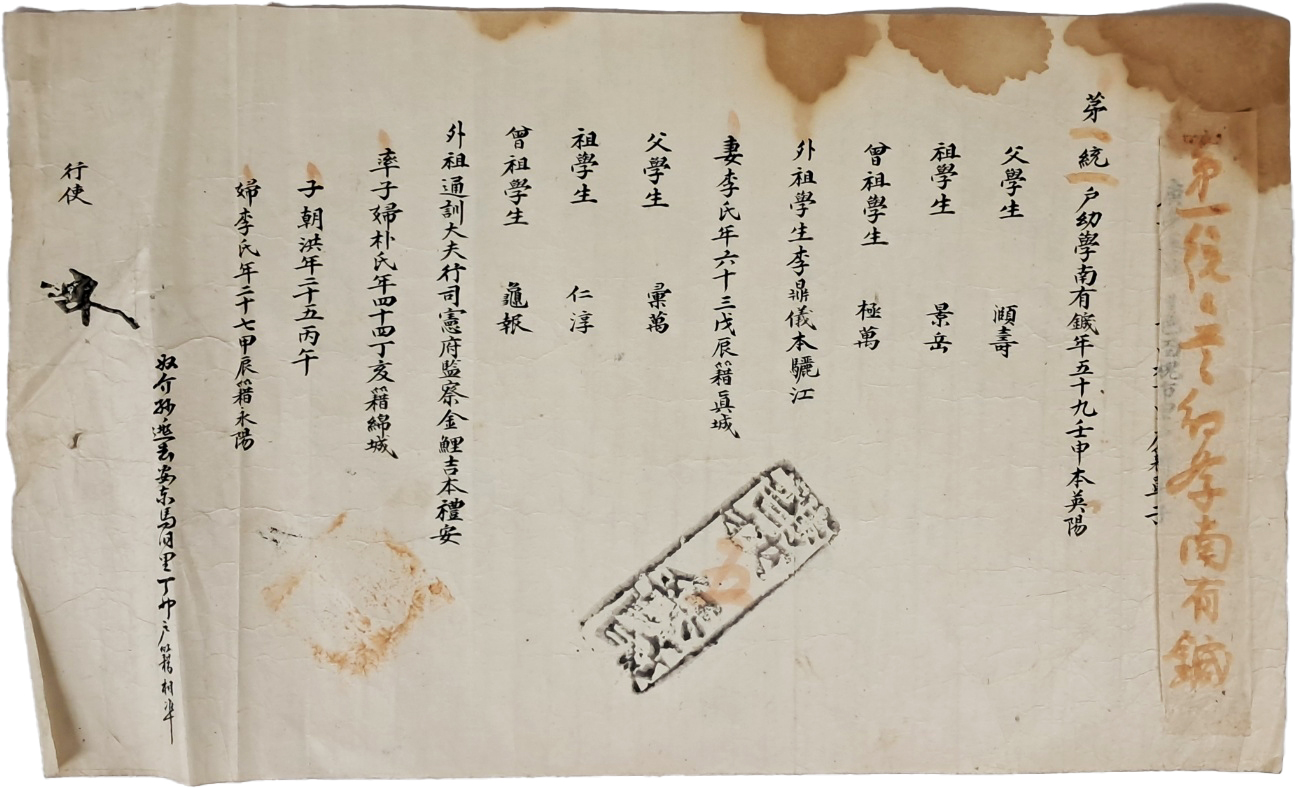 第一統一戶幼學南有鍼
第一統一戶幼學南有鍼年五十九壬申本英陽
父學生 灝壽
祖學生 景岳
曾祖學生 極萬
外祖學生李鼎儀本驪江
妻李氏年六十三戊辰籍眞城
父學生 彙萬
祖學生 仁淳
曾祖學生 龜報
外祖通訓大夫行司憲府監察金鯉吉本禮安
率子婦朴氏年四十四丁亥籍綿城
子朝洪年二十五丙午
婦李氏年二十七甲辰籍永陽
奴介孫逃去安東馬 里丁卯戶籍相準
行使